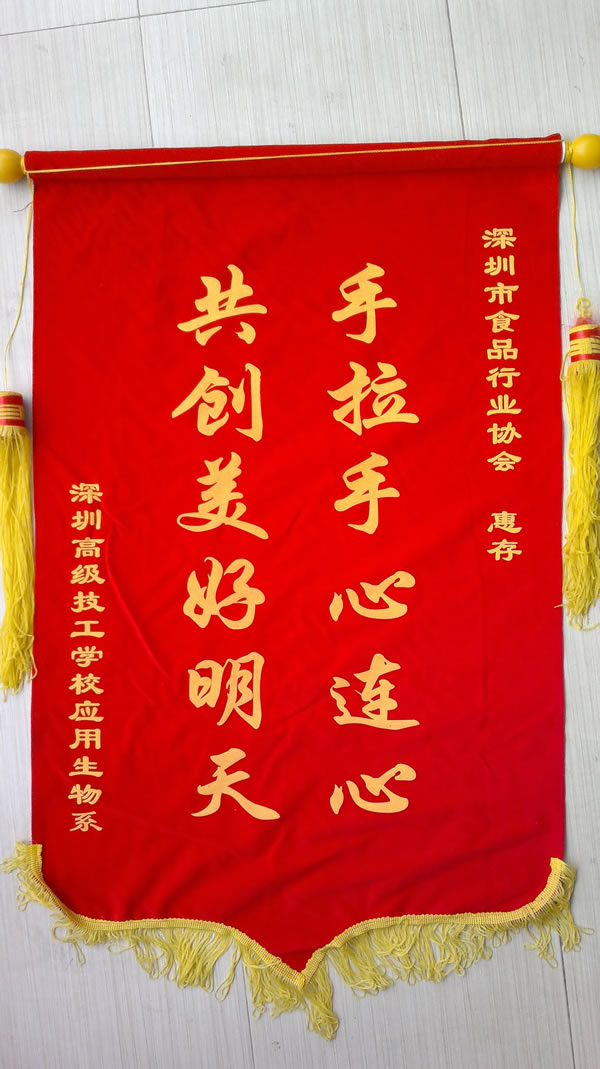 深圳市食品行业协会 惠存
手拉手心连心
共创美好明天
深圳高级技工学校应用生物系